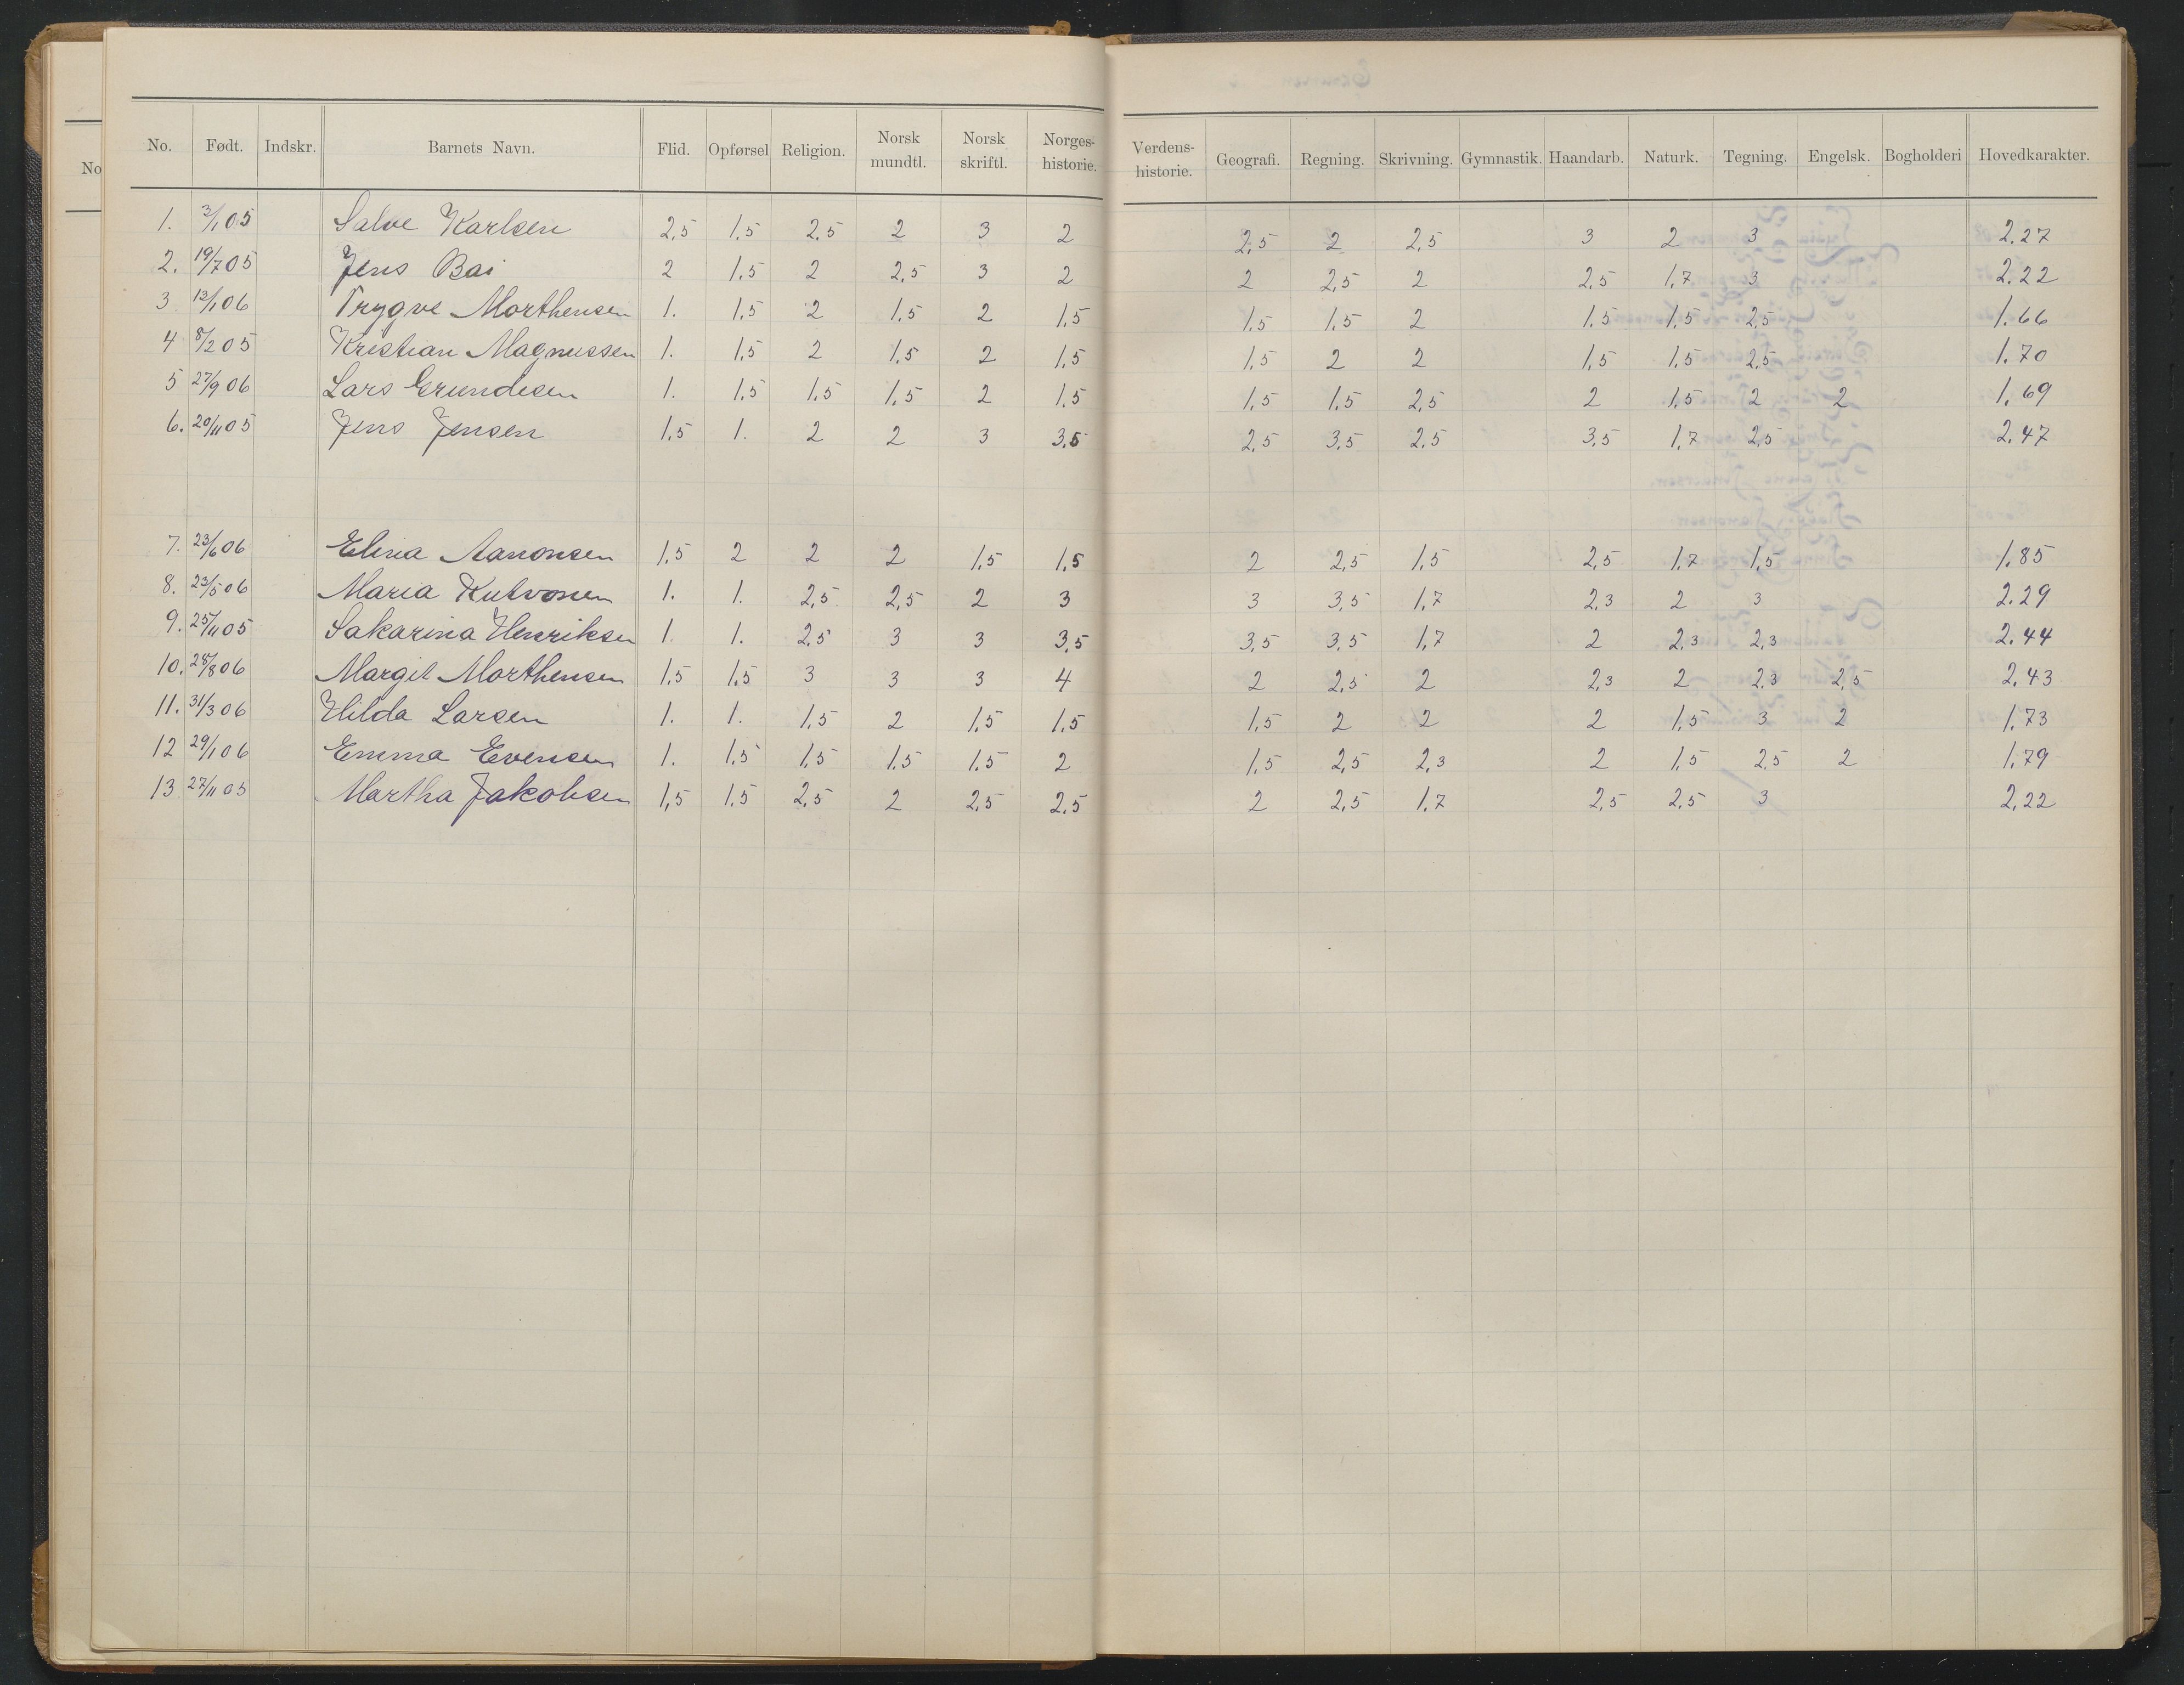 No.
No. Født. Indskr. Barnets Navn. Flid. Opførsel Religion. Norsk mundtl. Norsk skriftl. Norges-historie. Verdens-historie. Geografi. Regning. Skrivning. Gymnastik. Haandarb. Naturk. Tegning. Engelsk. Bogholderi Hovedkarakter.
1. 3/1 05 Salve Karlsen 2,5 1,5 2,5 2 3 2 2,5 2 2,5 3 2 3 2.27
2. 19/7 05 Jens Bai 2 1,5 2 2,5 3 2 2 2,5 2 2,5 1,7 3 2.22
3 13/1 06 Trygve Morthensen 1. 1,5 2 1,5 2 1,5 1,5 1,5 2 1,5 1,5 2,5 1.66
4 8/2 05 Kristian Magnussen 1. 1,5 2 1,5 2 1,5 1,5 2 2 1,5 1,5 2,5 1.70
5 27/9 06 Lars Grundesen 1. 1,5 1,5 1,5 2 1,5 1,5 1,5 2,5 2 1,5 2 2 1.69
6. 20/11 05 Jens Jensen 1,5 1. 2 2 3 3,5 2,5 3,5 2,5 3,5 1,7 2,5 2.47
7. 23/6 06 Elina Aanonsen 1,5 2 2 2 1,5 1,5 2 2,5 1,5 2,5 1,7 1,5 1.85
8. 23/5 06 Maria 1. 1. 2,5 2,5 2 3 3 3,5 1,7 2,3 2 3 2.29
9. 25/11 05 Sakarina Henriksen 1. 1. 2,5 3 3 3,5 3,5 3,5 1,7 2 2,3 2,3 2.44
10. 28/8 06 Margit Morthensen 1,5 1,5 3 3 3 4 2 2,5 2 2,3 2 2,3 2,5 2.43
11. 31/3 06 Hilda Larsen 1. 1. 1,5 2 1,5 1,5 1,5 2 2 2 1,5 3 2 1.73
12 29/1 06 Emma Evensen 1. 1,5 1,5 1,5 1,5 2 1,5 2,5 2,3 2 1,5 2,5 2 1,79
13 27/11 05 Martha Jakobsen 1,5 1,5 2,5 2 2,5 2,5 2 2,5 1,7 2,5 2,5 3 2,22